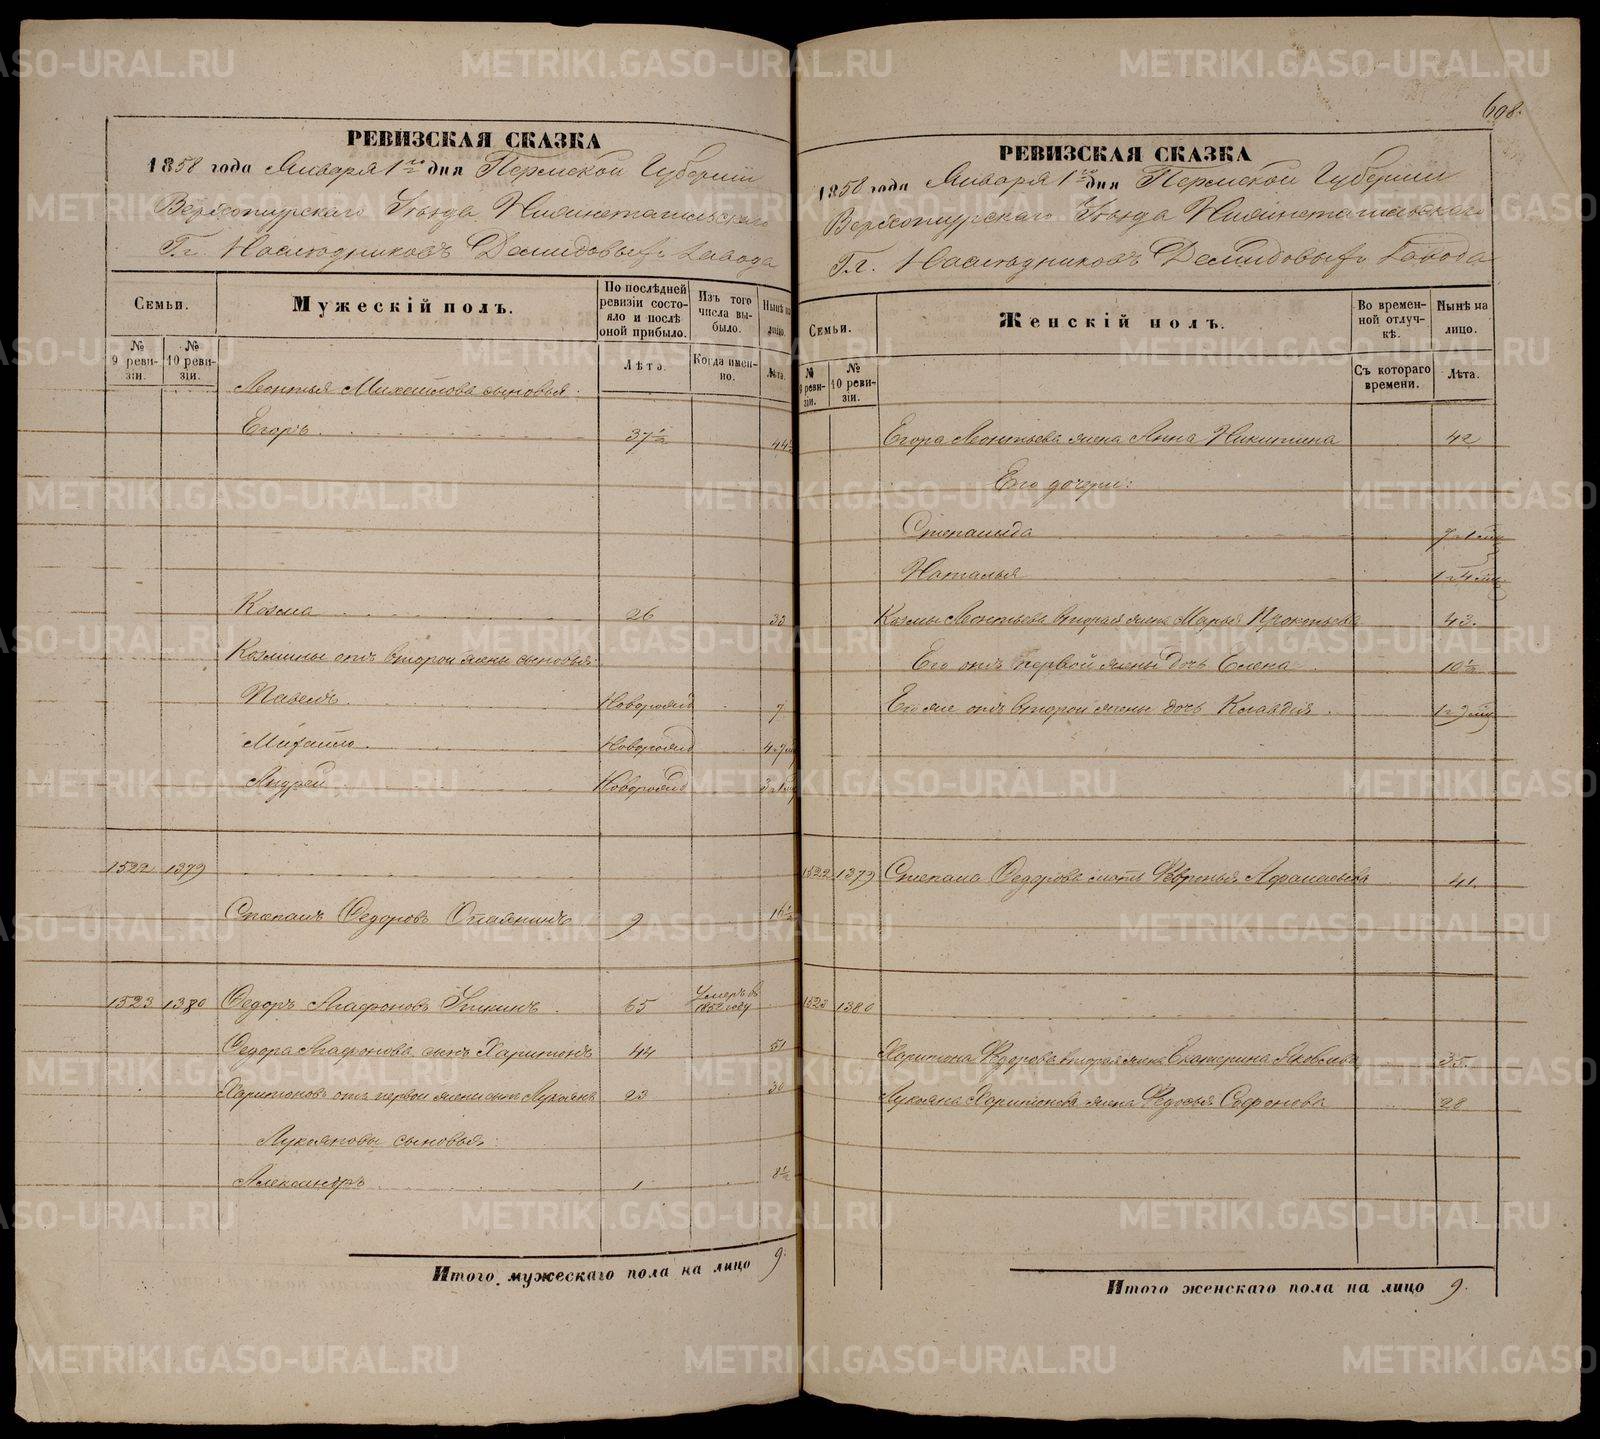 РЕВИЗСКАЯ СКАЗКА
1858 года Января 1го дня Пермской Губернии
Верхотурского Уѣзда Нижнетагильского
Гг. Наслѣдниковъ Демидовыхъ Завода
Семьи.
Мужескій полъ.
По послѣдней ревизіи состояло и послѣ оной прибыло.
Изъ того числа выбыло.
Нынѣ на лицо.
№ 9 ревизіи.
№ 10 ревизіи.
Лѣта.
Когда именно.
Лѣта.
Леонтья Михайлова сыновья:
Егоръ 37½ 44½
Козма 26 33
Козмины отъ второй жены сыновья:
Павелъ Новорожд 7
Михайло Новорожд 4
Андрей Новорожд
1522 1379
Степанъ Федоровъ 9 16½
1523 1380 Федоръ Агафоновъ 65 Умеръ въ 1852 году
Федора Агафонова сынъ Харитонъ 44 51
Харитоновъ отъ первой жены сынъ Лукоянъ 23 30
Лукояновы сыновья:
Александръ 1 8½
Итого мужескаго пола на лицо 9.
698.
РЕВИЗСКАЯ СКАЗКА
1858 года Января 1го дня Пермской Губернии
Верхотурского Уѣзда Нижнетагильского
Гг. Наслѣдниковъ Демидовыхъ Завода
Семьи.
Женскій полъ.
Во временной отлучкѣ.
Нынѣ на лицо.
№ 9 ревизіи.
№ 10 ревизіи.
Съ котораго времени.
Лѣта.
Егора Леонтьева жена Анна Никитина 42
Его дочери:
Степанида
Наталья
Козмы Леонтьева вторая жена Марья Прокопьева 43.
Его отъ первой жены дочь Елена 10½
Его же отъ второй жены дочь Клавдія
1522 1379 Степана Федорова мать Февронья Афанасьева 41.
1523 1380
Харитона Федорова вторая жена Екатерина Яковлева 35.
Лукояна Харитонова жена Федосья Софронова 28
Итого женскаго пола на лицо 9.
METRIKI.GASO-URAL.RU